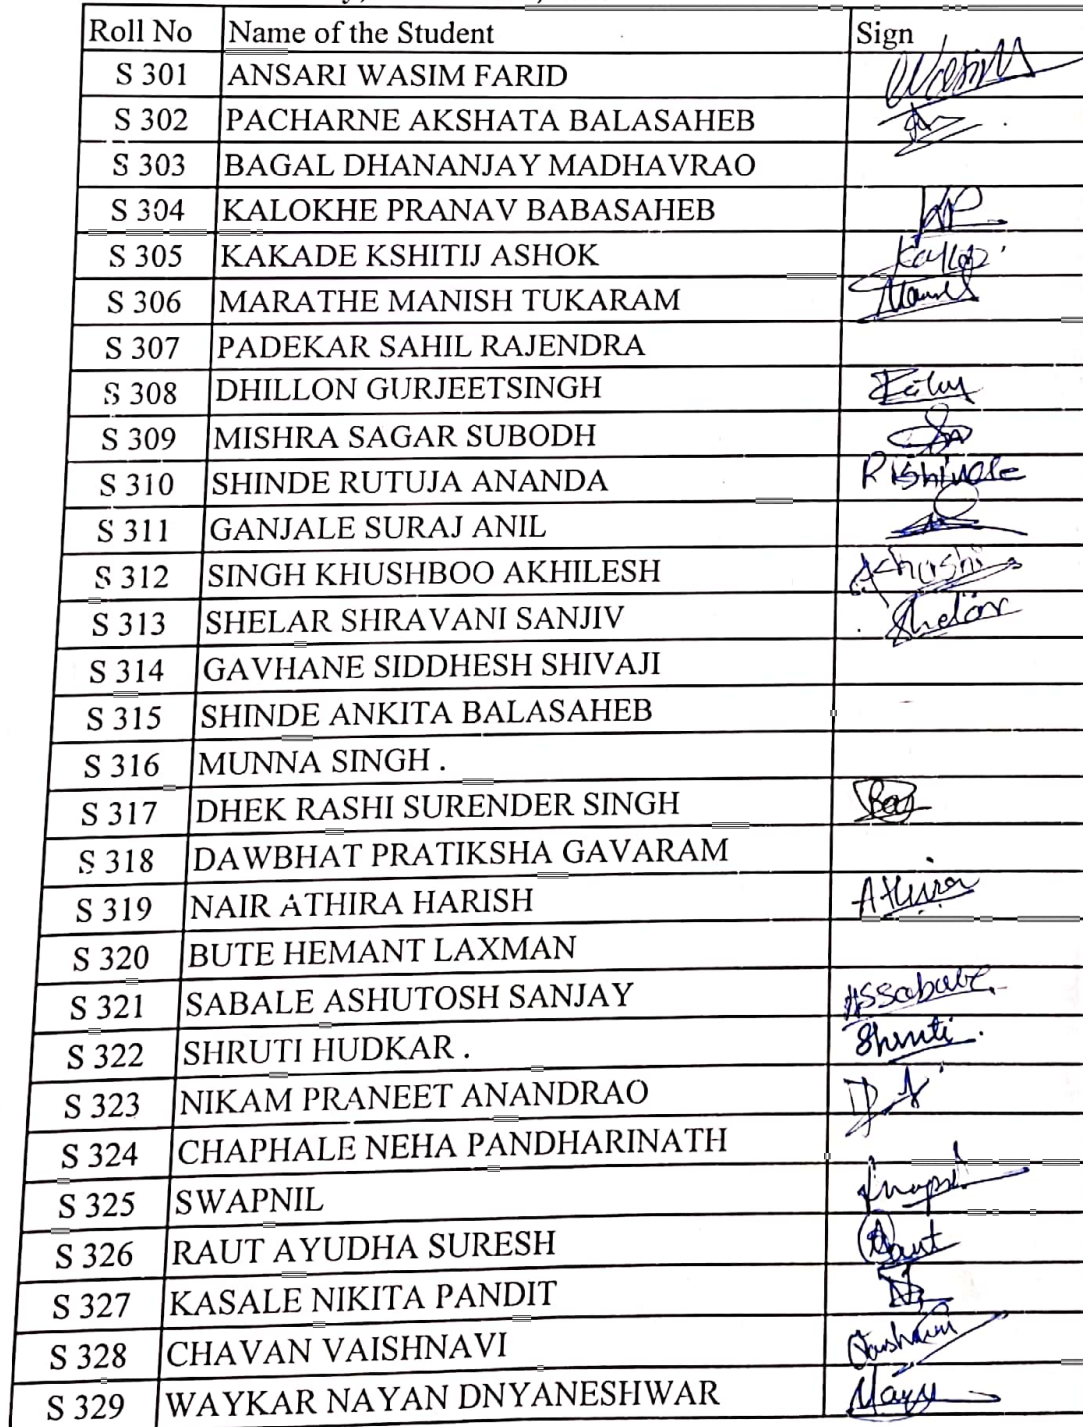 Roll No Name of the Student Sign
S 301 ANSARI WASIM FARID Wasim
S 302 PACHARNE AKSHATA BALASAHEB
S 303 BAGAL DHANANJAY MADHAVRAO
S 304 KALOKHE PRANAV BABASAHEB
S 305 KAKADE KSHITIJ ASHOK
S 306 MARATHE MANISH TUKARAM
S 307 PADEKAR SAHIL RAJENDRA
S 308 DHILLON GURJEETSINGH
S 309 MISHRA SAGAR SUBODH
S 310 SHINDE RUTUJA ANANDA
S 311 GANJALE SURAJ ANIL
S 312 SINGH KHUSHBOO AKHILESH
S 313 SHELAR SHRAVANI SANJIV Shelar
S 314 GAVHANE SIDDHESH SHIVAJI
S 315 SHINDE ANKITA BALASAHEB
S 316 MUNNA SINGH .
S 317 DHEK RASHI SURENDER SINGH
S 318 DAWBHAT PRATIKSHA GAVARAM
S 319 NAIR ATHIRA HARISH Athira
S 320 BUTE HEMANT LAXMAN
S 321 SABALE ASHUTOSH SANJAY
S 322 SHRUTI HUDKAR . Shruti.
S 323 NIKAM PRANEET ANANDRAO
S 324 CHAPHALE NEHA PANDHARINATH
S 325 SWAPNIL
S 326 RAUT AYUDHA SURESH
S 327 KASALE NIKITA PANDIT
S 328 CHAVAN VAISHNAVI
S 329 WAYKAR NAYAN DNYANESHWAR